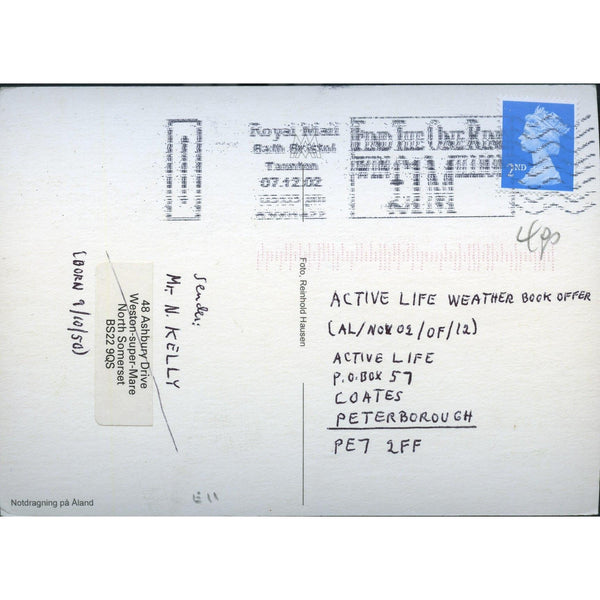 Royal Mail
Bath Bristol
Taunton
07.12.02
FIND THE ONE RING
2ND
4p
Foto, Reinhold Hausen
ACTIVE LIFE WEATHER BOOK OFFER
(AL/NOV02/OF/12)
ACTIVE LIFE
P.O.BOX 57
COATES
PETERBOROUGH
PE7 2FF
Sender:
Mr N. KELLY
48 Ashbury Drive
Weston-super-Mare
North Somerset
BS22 9QS
(BORN 9/10/50)
Notdragning på Åland